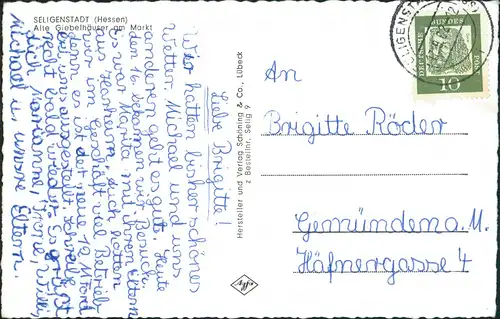 SELIGENSTADT (Hessen)
Alte Giebelhäuser am Markt
Liebe Brigitte!
Wir hatten bisher schönes
Wetter. Michael und uns
anderen geht es gut. Heute
den 16. bekamen wir Besuch.
Es war Marita mit ihren Eltern
aus Hanau. Auch hatten
wir im Geschäft viel Betrieb
denn es ist der neue 12 M Ford
bei uns ausgestellt. Schreibst
recht bald wieder. Es grüßt
dich Marianne, Irene, Willi,
Michael u. unsre Eltern.
Hersteller und Verlag Schöning & Co., Lübeck
z Bestellnr. Selig 9
An
Brigitte Röder
Gemünden a. M.
Häfnergasse 4
SELIGENST
DEUTSCHE
BUNDES
POST
10